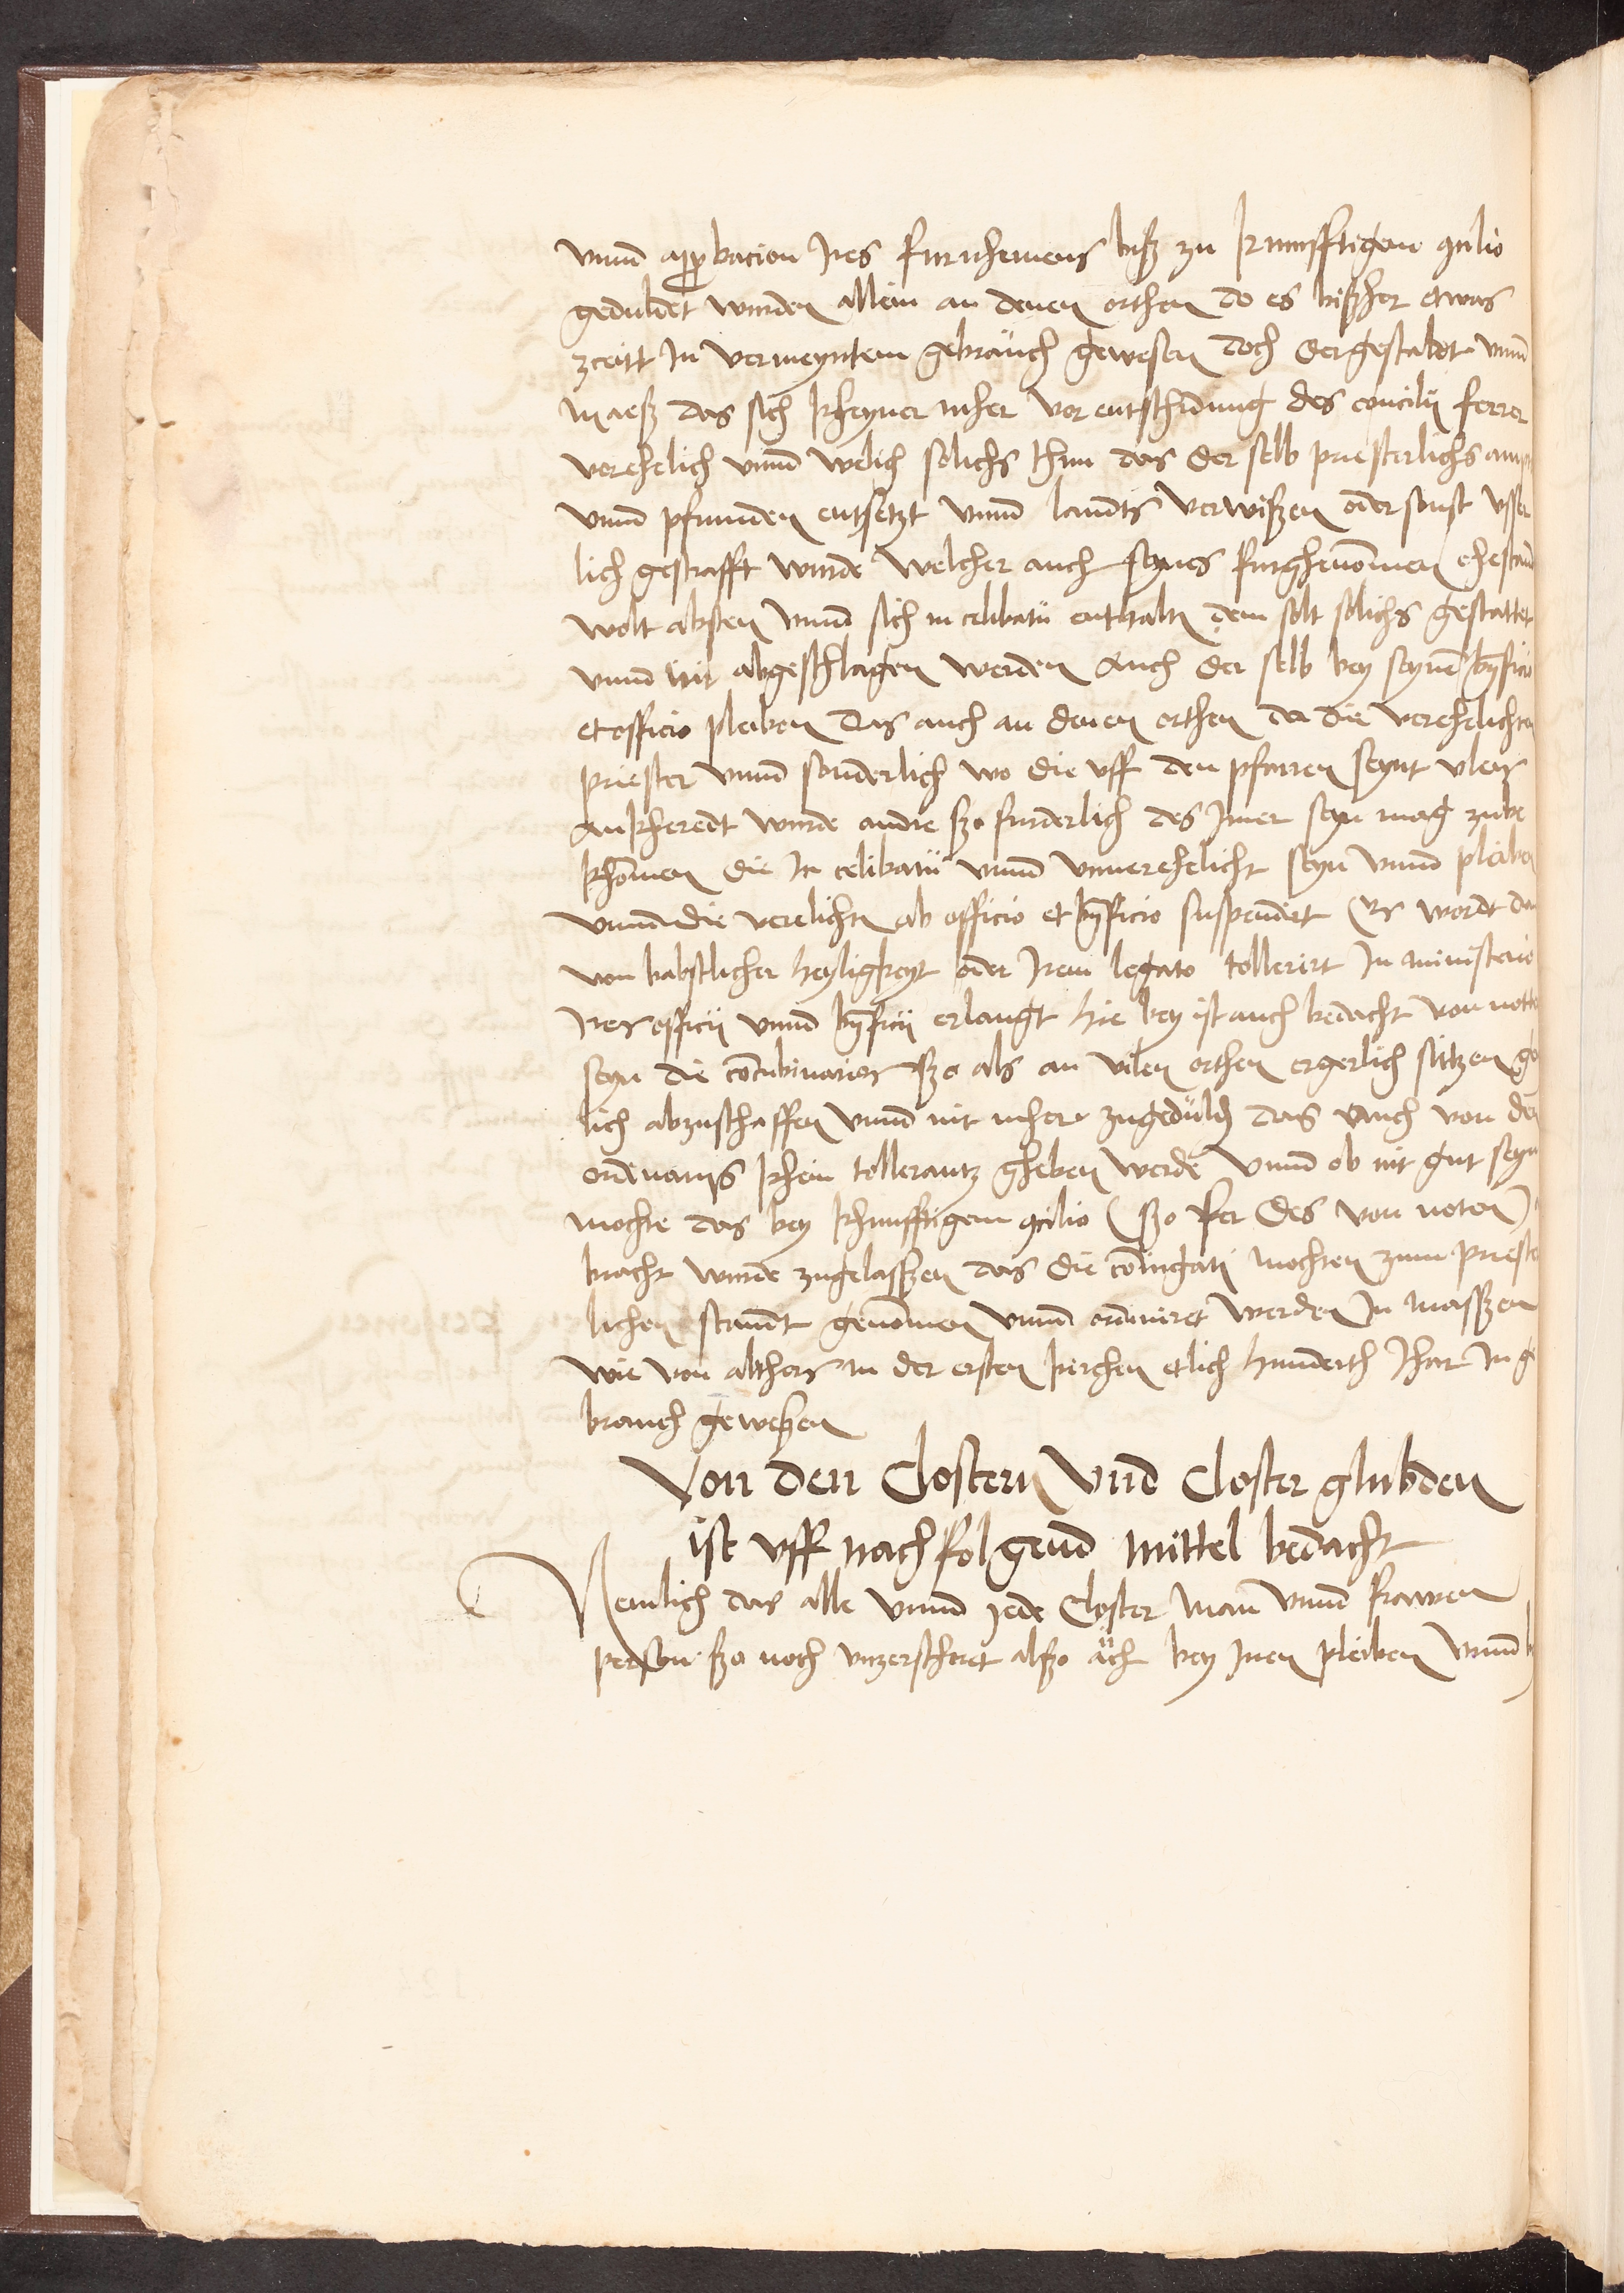 vnnd approbacion Ires furnhemens bisz zu kunfftigem concilio
geduldet wurden allein an denen orthen do es bißher etwas
zceitt In vermeyntem gebrauch gewesen doch dergestaldt vnnd
maesz das sich kheyner mher vor entschidung des concilii ferrer
verehelich vnnd welich solichs thun das der selb priesterlichs ampts
vnnd pfrunden entsetzt vnnd lanndts verwißen oder sonst
lich gestrafft wurde Welcher auch seyns furghenommen ehestand
wolt absten vnnd sich in celibatu enthalten dem solt solichs gestattet
vnnd nit abgeschlagen werden Auch der selb bey seynem beneficio
et officio pleiben Das auch an denen orthen da die verehelichten
priester vnnd sonderlich wo die vff den pfarren seynt vleis
ankheredt wurde andre szo furderlich des Imer seyn mag zube
khommen die In celibatu vnnd vnuerehelicht seyn vnnd pleiben
vnnd die verelichten ab officio et beneficio suspendirt Es wordt dan
von babstlicher heyligkeyt oder Irem legato tollerirt In ministerio
Ires officii vnnd beneficii erlangt Hie bey ist auch bedacht von notten
seyn die concubinarios szo als an vilen orthen ergerlich sitzen
lich abzuschaffen vnnd nit mher zugedulden das auch von den
ordenariis khein tollerantz gheben werde Vnnd ob nit gut seyn
mochte das bey khunfftigem concilio (szo fer des von noten)
bracht wurde zugelasszen das die coniugati mochten zum prieste
lichen stanndt genommen vnnd ordinieret werden In masszen
wie von althers in der ersten kirchen etlich hunderth Jhar In ge
brauch geweßen
Von den Clostern vnd Closter glubden
ist vff nachfolgend mittel bedacht
Nemlich das alle vnnd jede Closter man vnnd frawen
person szo noch vnzersthoret alszo ach bey Inen pleiben vnnd